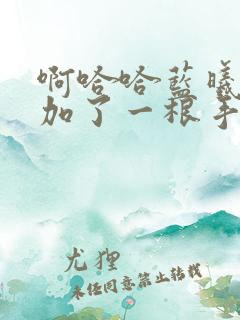 啊哈哈蓝曦
加了一根手
尤狸
未经同意禁止转载